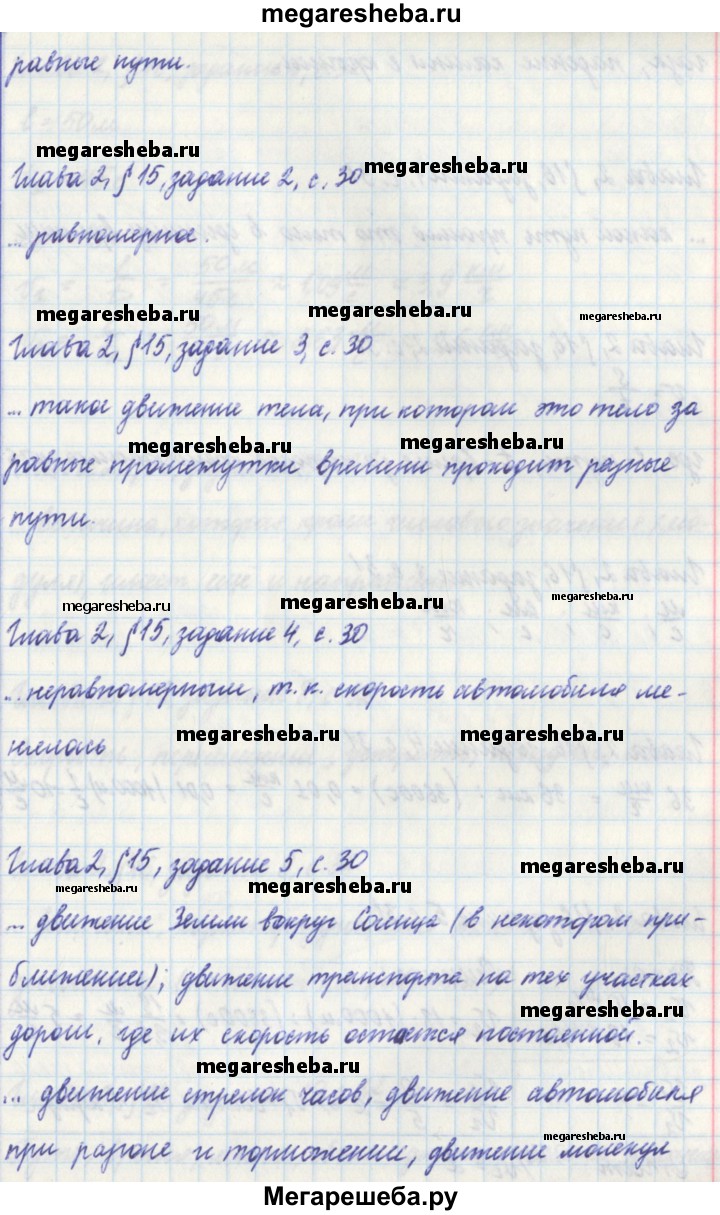 megaresheba.ru
равные пути.
megaresheba.ru
megaresheba.ru
Глава 2, §15, задание 2, с. 30
... равномерное.
megaresheba.ru
megaresheba.ru
megaresheba.ru
Глава 2, §15, задание 3, с. 30
... такое движение тела, при котором это тело за
megaresheba.ru
megaresheba.ru
равные промежутки времени проходит разные
пути.
megaresheba.ru
megaresheba.ru
megaresheba.ru
Глава 2, §15, задание 4, с. 30
... неравномерным, т.к. скорость автомобиля ме-
megaresheba.ru
megaresheba.ru
нялась
Глава 2, §15, задание 5, с. 30
megaresheba.ru
megaresheba.ru
megaresheba.ru
... движение Земли вокруг Солнца (в некотором при-
ближении); движение транспорта на тех участках
megaresheba.ru
дороги, где их скорость остается постоянной.
megaresheba.ru
... движение стрелок часов, движение автомобиля
megaresheba.ru
при разгоне и торможении, движение молекул
Мегарешеба.ру